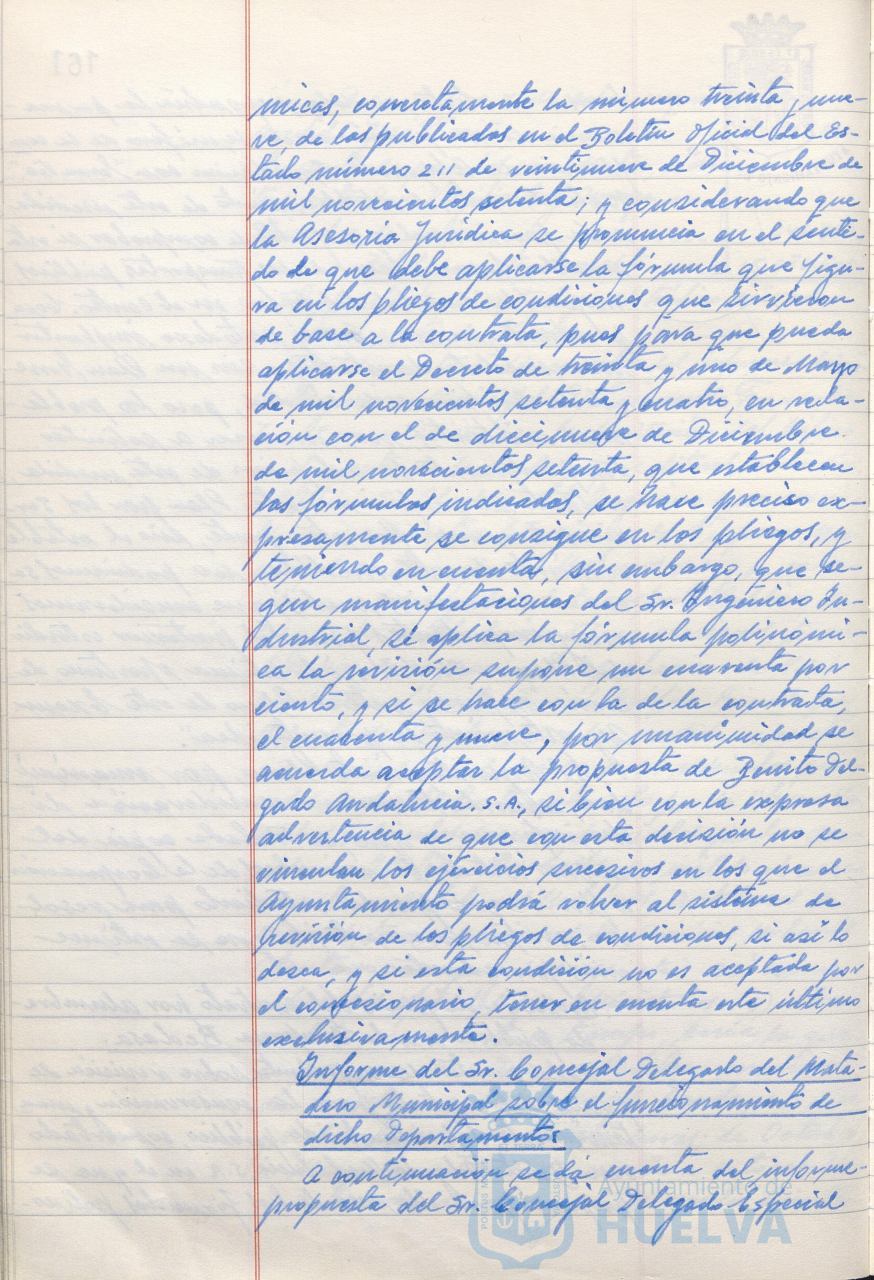 micas, concretamente la número treinta y nue-
ve, de las publicadas en el Boletín Oficial del Es-
tado número 211 de veintinueve de Diciembre de
mil novecientos setenta; y considerando que
la Asesoría Jurídica se pronuncia en el senti-
do de que debe aplicarse la fórmula que figu-
ra en los pliegos de condiciones que sirvieron
de base a la contrata, pues para que pueda
aplicarse el Decreto de treinta y uno de Mayo
de mil novecientos setenta y cuatro, en rela-
ción con el de diecinueve de Diciembre
de mil novecientos setenta, que establecen
las fórmulas indicadas, se hace preciso ex-
presamente se consigne en los pliegos, y
teniendo en cuenta, sin embargo, que se-
gun manifestaciones del Sr. Ingeniero In-
dustrial, si aplica la fórmula polinómi-
ca la revisión supone un cuarenta por
ciento, y si se hace con la de la contrata,
el cuarenta y nueve, por unanimidad se
acuerda aceptar la propuesta de Benito Del-
gado Andalucia. S.A., si bien con la expresa
advertencia de que con esta decisión no se
vinculan los ejercicios sucesivos en los que el
Ayuntamiento podrá volver al sistema de
revisión de los pliegos de condiciones, si así lo
desea, y si esta condición no es aceptada por
el concesionario, tener en cuenta este último
exclusivamente.
Informe del Sr. Concejal Delegado del Mata-
dero Municipal sobre el funcionamiento de
dicho Departamento:
A continuación se dá cuenta del informe-
propuesta del Sr. Concejal Delegado Especial
Ayuntamiento de
HUELVA